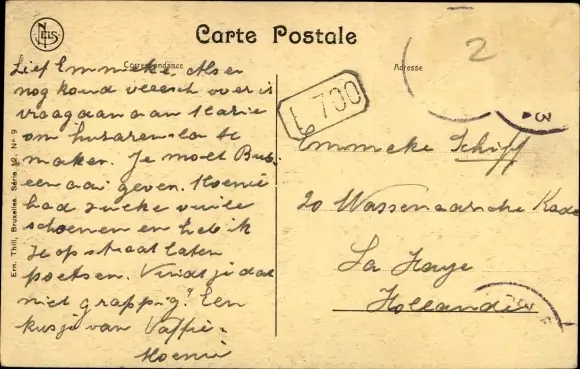 NELS
Carte Postale
Correspondance
Adresse
Lief Emmeke, Als er
nog koud vleesch over is
vraag dan aan Marie
om huzaren-sla te
maken. Je moet Bub.
een aai geven. Moenie
had zulke vuile
schoenen en heb ik
ze op straat laten
poetsen. Vindt je dat
niet grappig? Een
kusje van Pappie.
Moenie
L 700
2
3
Emmeke Schiff
20 Wassenaarsche Kade
La Haye
Hollande
Ern. Thill, Bruxelles. Série 12. No 9